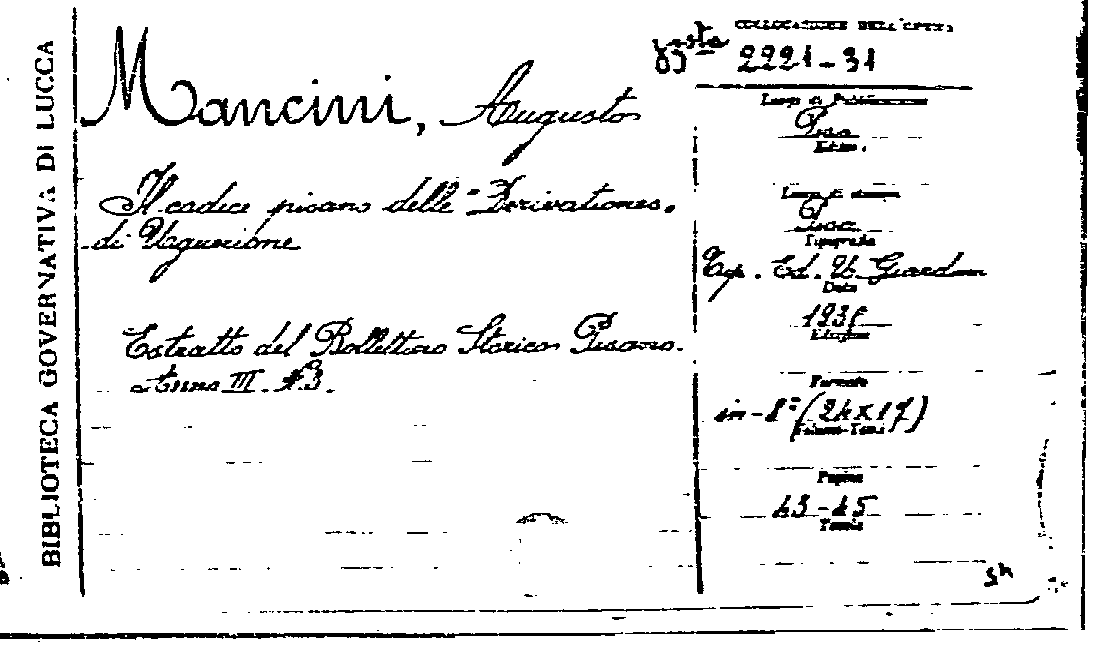 BIBLIOTECA GOVERNATIVA DI LUCCA
Mancini, Augusto
Il codice pisano delle "Derivationes.
di Uguccione
Estratto del Bollettino Storico Pisano.
Anno III. N.3.
COLLOCAZIONE DELL'OPERA
Busta 2221-31
Luogo di Pubblicazione
Pisa
Editore.
Luogo di stampa
Pisa
Tipografia
Tip. Ed. U. Giardini
Data
Edizione
Formato
in-8° (24x17)
Volume-Tomo
Pagine
43-45
Tavole